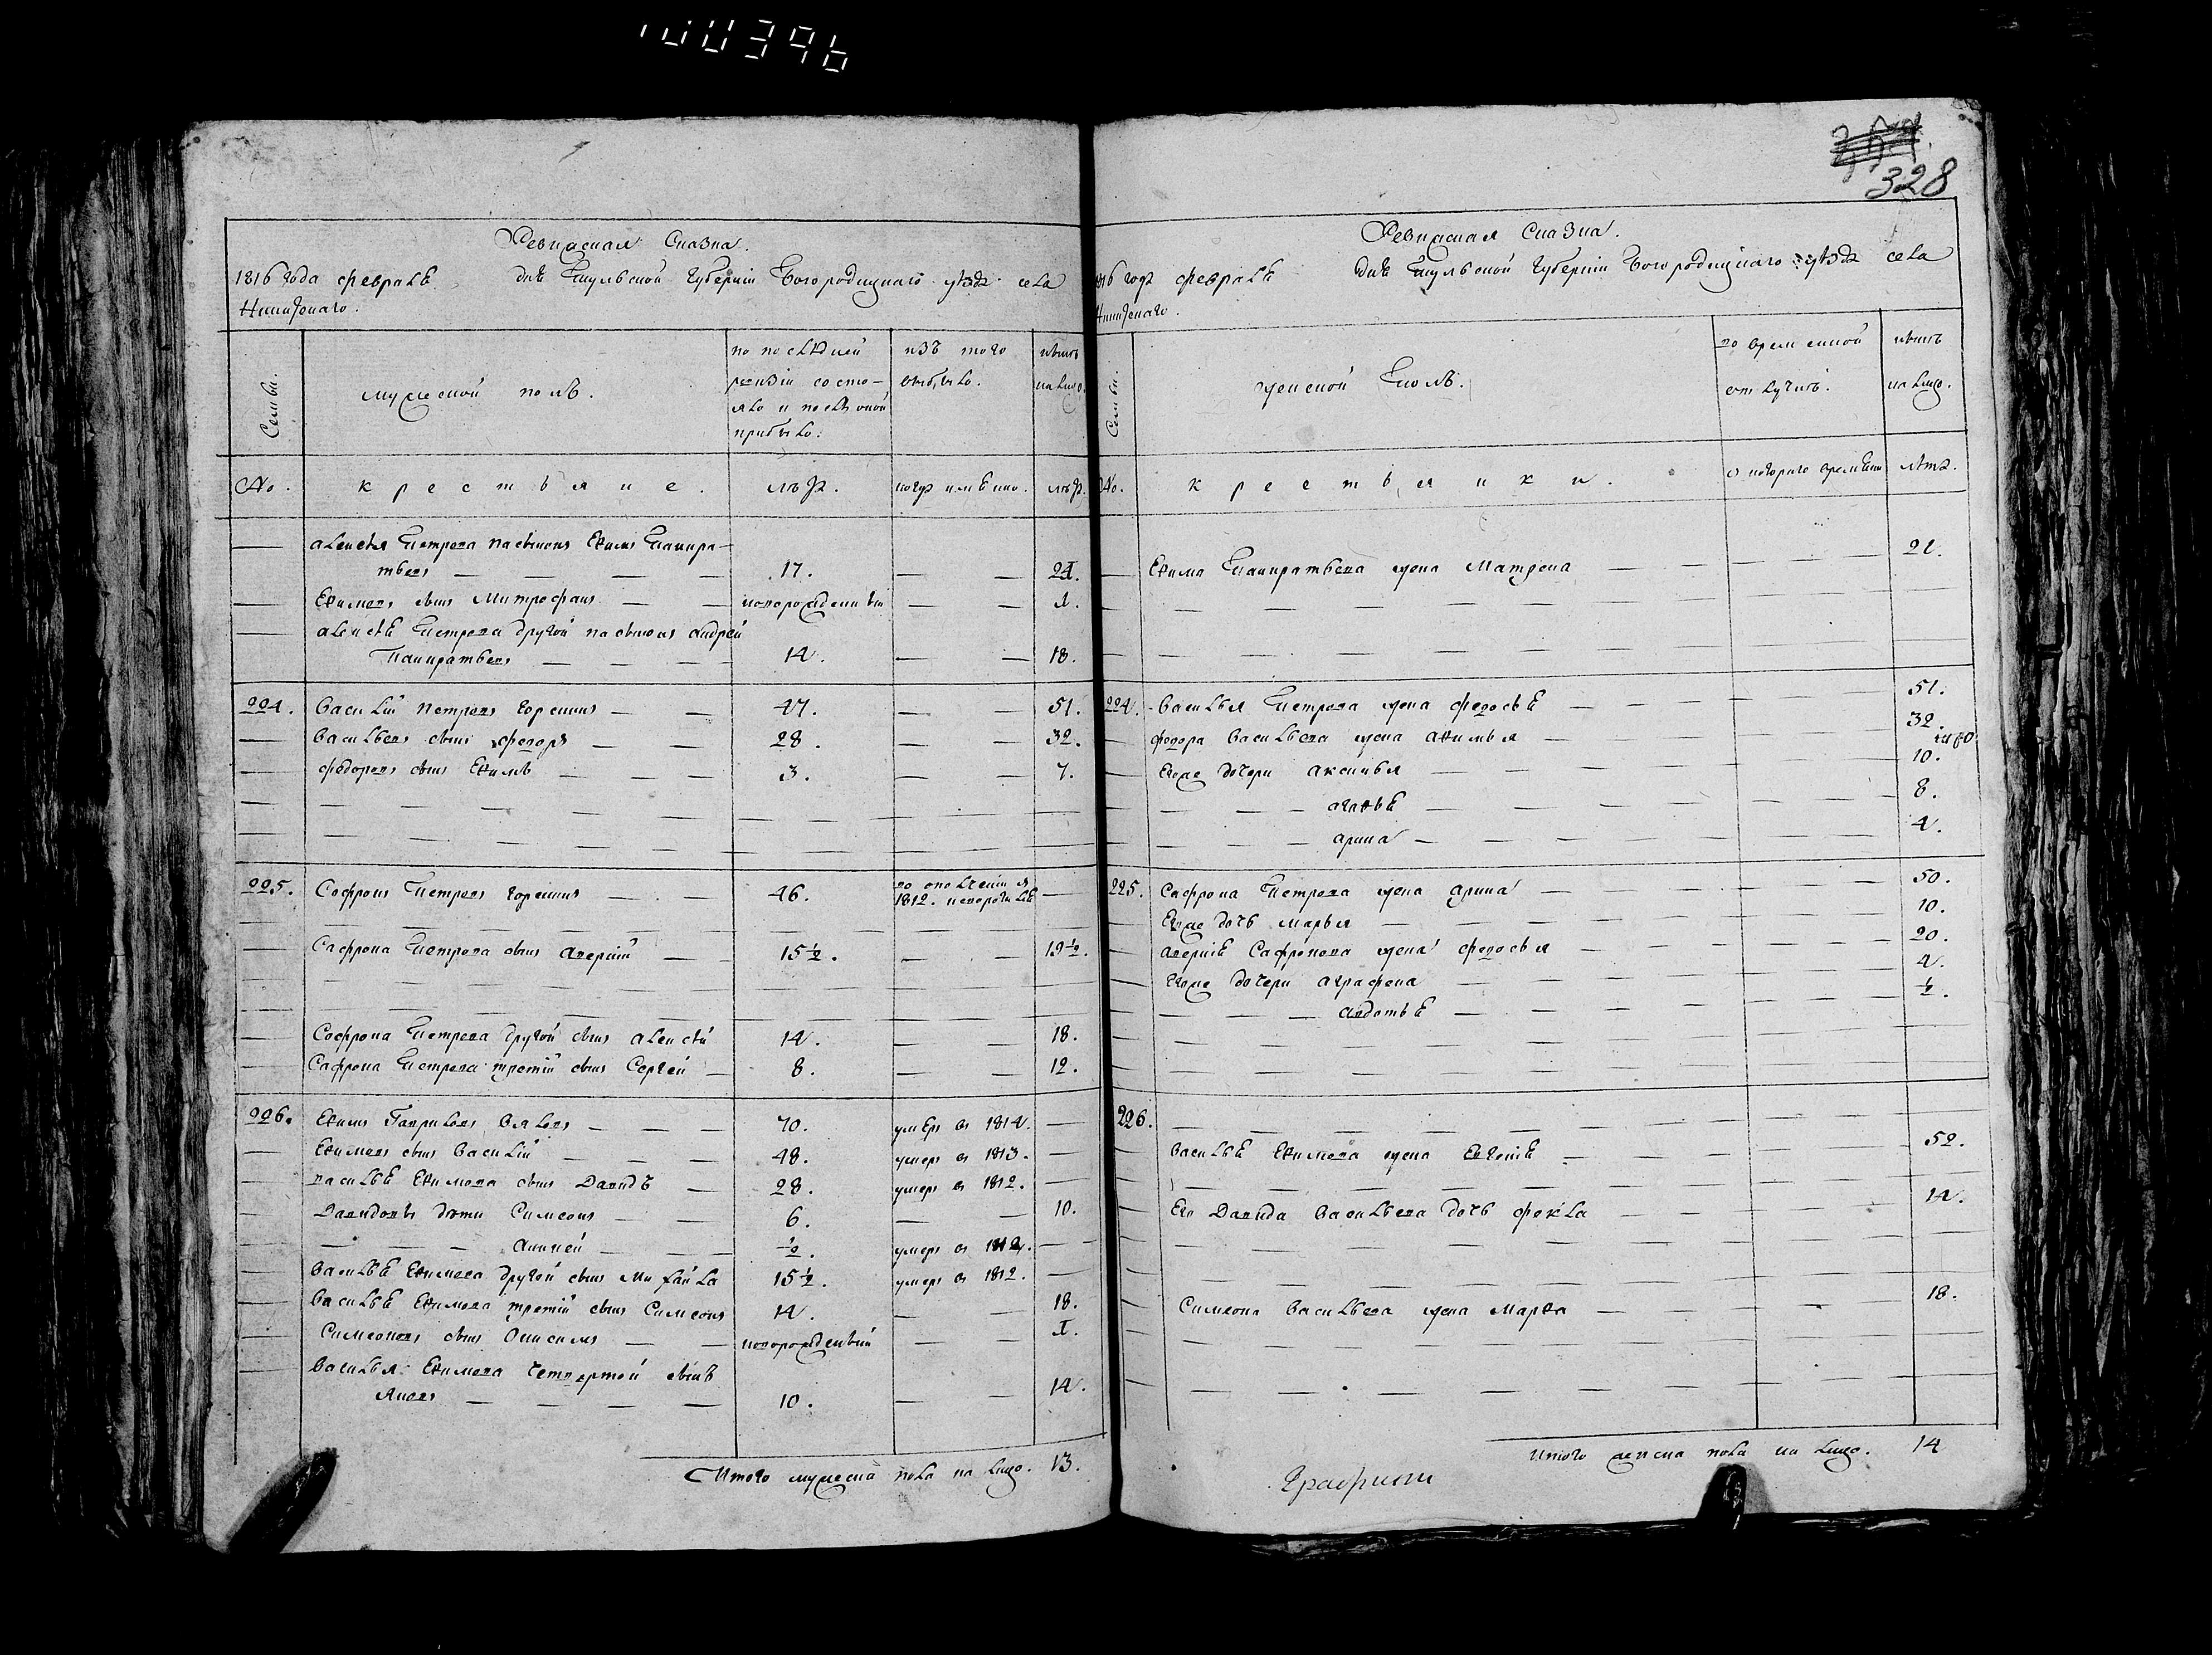 100396
328
Ревизская Сказка.
1816 года февраля дня Тульской Губернии Богородицкаго уезда села
Никитскаго.
Семьи.
мужеской полъ.
по последней ревизіи состо-
яло и после оной
прибыло.
изъ того
выбыло.
ныне
на лицо.
No.
крестьяне.
лета.
когда именно.
лета.
Алексея Петрова пасынокъ Екимъ Панкра-
тьевъ — 17. — 21.
Екимовъ сынъ Митрофанъ — новорожденный — 1.
Алексея Петрова другой пасынокъ Андрей
Панкратьевъ — 14. — 18.
224. Василій Петровъ Горшинъ — 47. — 51.
Васильевъ сынъ Федоръ — 28. — 32.
Федоровъ сынъ Екимъ — 3. — 7.
225. Софронъ Петровъ Горшинъ — 46. по ополченіи въ
1812. невороти лся —
Сафрона Петрова сынъ Аверкій — 15½. — 19½.
Софрона Петрова другой сынъ Алексей 14. — 18.
Сафрона Петрова третій сынъ Сергей — 8. — 12.
226. Екимъ Гавриловъ — 70. умеръ въ 1814. —
Екимовъ сынъ Василій — 48. умеръ въ 1813. —
Василья Екимова сынъ Давидъ — 28. умеръ въ 1812. —
Давидовы дети Симеонъ — 6. — 10.
— ½. умеръ въ 1812. —
Василья Екимова другой сынъ Михайла 15½. умеръ въ 1812. —
Василья Екимова третій сынъ Симеонъ 14. — 18.
Симеоновъ сынъ Онисимъ — новорожденный — 1.
Василья Екимова четвертой сынъ
Яковъ — 10. — 14.
Итого мужеска пола на лицо. 13.
Ревизская Сказка.
1816 года февраля дня Тульской Губернии Богородицкаго уезда села
Никитскаго.
Семьи.
женской полъ.
во временной
отлучке.
ныне
на лицо.
No.
крестьянки.
с котораго времени
лета.
Екима Панкратьева жена Матрена — 21.
224. Василья Петрова жена Федосья — 51.
Федора Васильева жена Акимья — 32.
Егоже дочери Аксинья — 10.
Агафья — 8.
Арина — 4.
225. Сафрона Петрова жена Арина — 50.
Егоже дочь Марья — 10.
Аверкія Сафронова жена Федосья — 20.
Егоже дочери Аграфена — 4.
Авдотья — ½.
226.
Василья Екимова жена Евгенія — 52.
Его Давида Васильева дочь Фекла — 14.
Симеона Васильева жена Марфа — 18.
Итого женска пола на лицо. 14